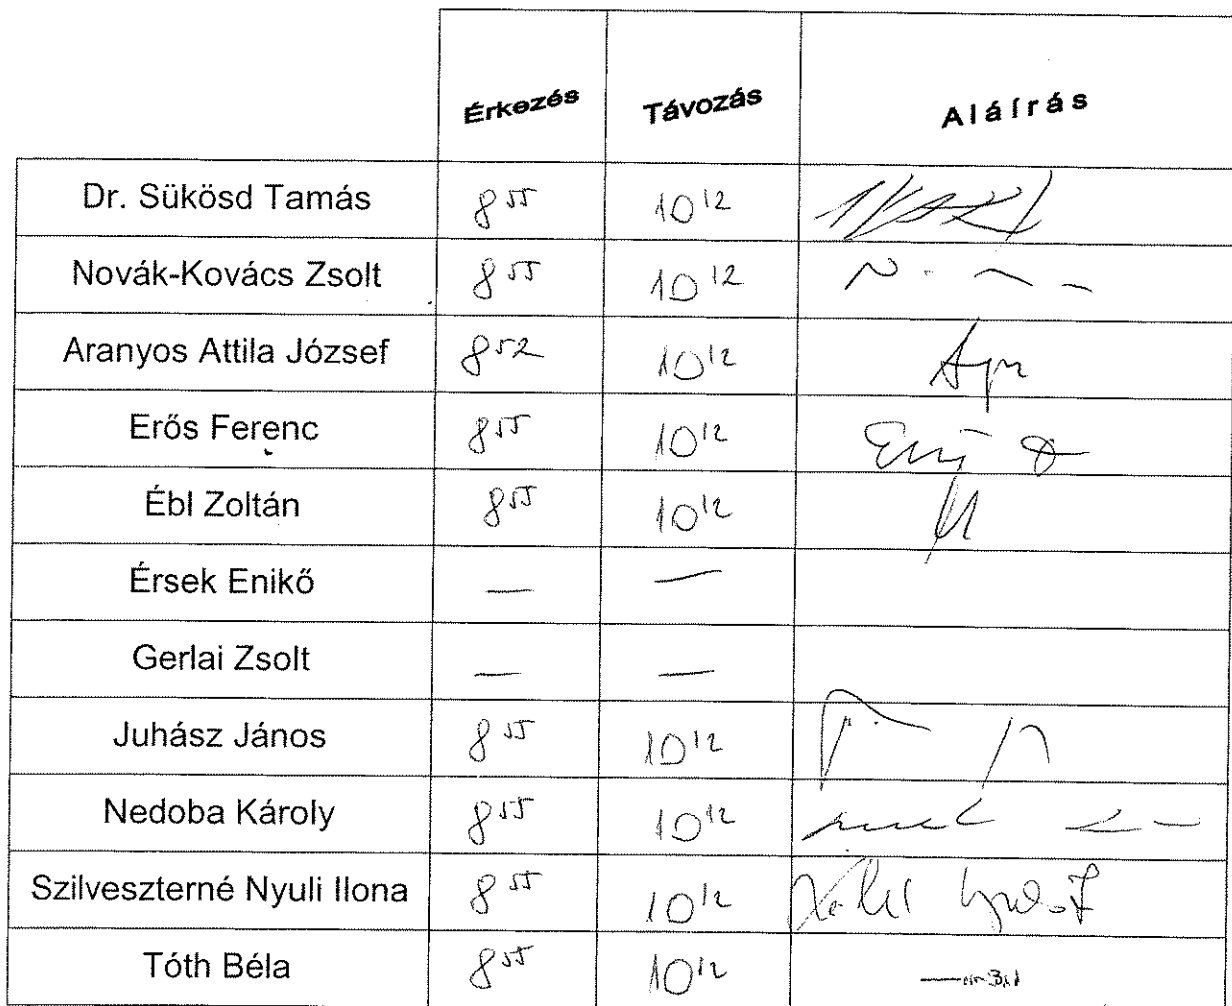 Érkezés Távozás Aláírás
Dr. Sükösd Tamás 8 55 10 12
Novák-Kovács Zsolt 8 55 10 12
Aranyos Attila József 8 52 10 12
Erős Ferenc 8 55 10 12
Ébl Zoltán 8 55 10 12
Érsek Enikő — —
Gerlai Zsolt — —
Juhász János 8 55 10 12
Nedoba Károly 8 55 10 12
Szilveszterné Nyuli Ilona 8 55 10 12
Tóth Béla 8 55 10 12